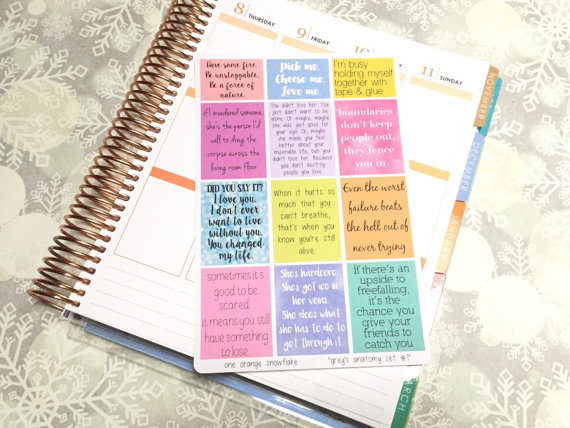 8
THURSDAY
9
FRIDAY
10
11
SUNDAY
NOVEMBER
DECEMBER
JANUARY
MARCH
Have some fire.
Be unstoppable.
Be a force of
nature.
Pick me.
Choose me.
Love me.
I'm busy
holding myself
together with
tape & glue
if I murdered someone,
she's the person I'd
call to drag the
corpse across the
living room floor
You didn't love her. You
just didn't want to be
alone. Or maybe, maybe
she was just good for
your ego. Or, maybe
she made you feel
better about your
miserable life, but you
didn't love her. Because
you don't destroy
people you love.
boundaries
don't keep
people out,
they fence
you in.
DID YOU SAY IT?
I love you.
I don't ever
want to live
without you.
You changed
my life.
When it hurts so
much that you
can't breathe,
that's when you
know you're still
alive.
Even the worst
failure beats
the hell out of
never trying
sometimes it's
good to be
scared.
it means you still
have something
to lose..
She's hardcore.
She's got ice in
her veins.
She does what
she has to do to
get through it.
If there's an
upside to
freefalling,
it's the
chance you
give your
friends to
catch you
one orange snowflake
"grey's anatomy set #1"